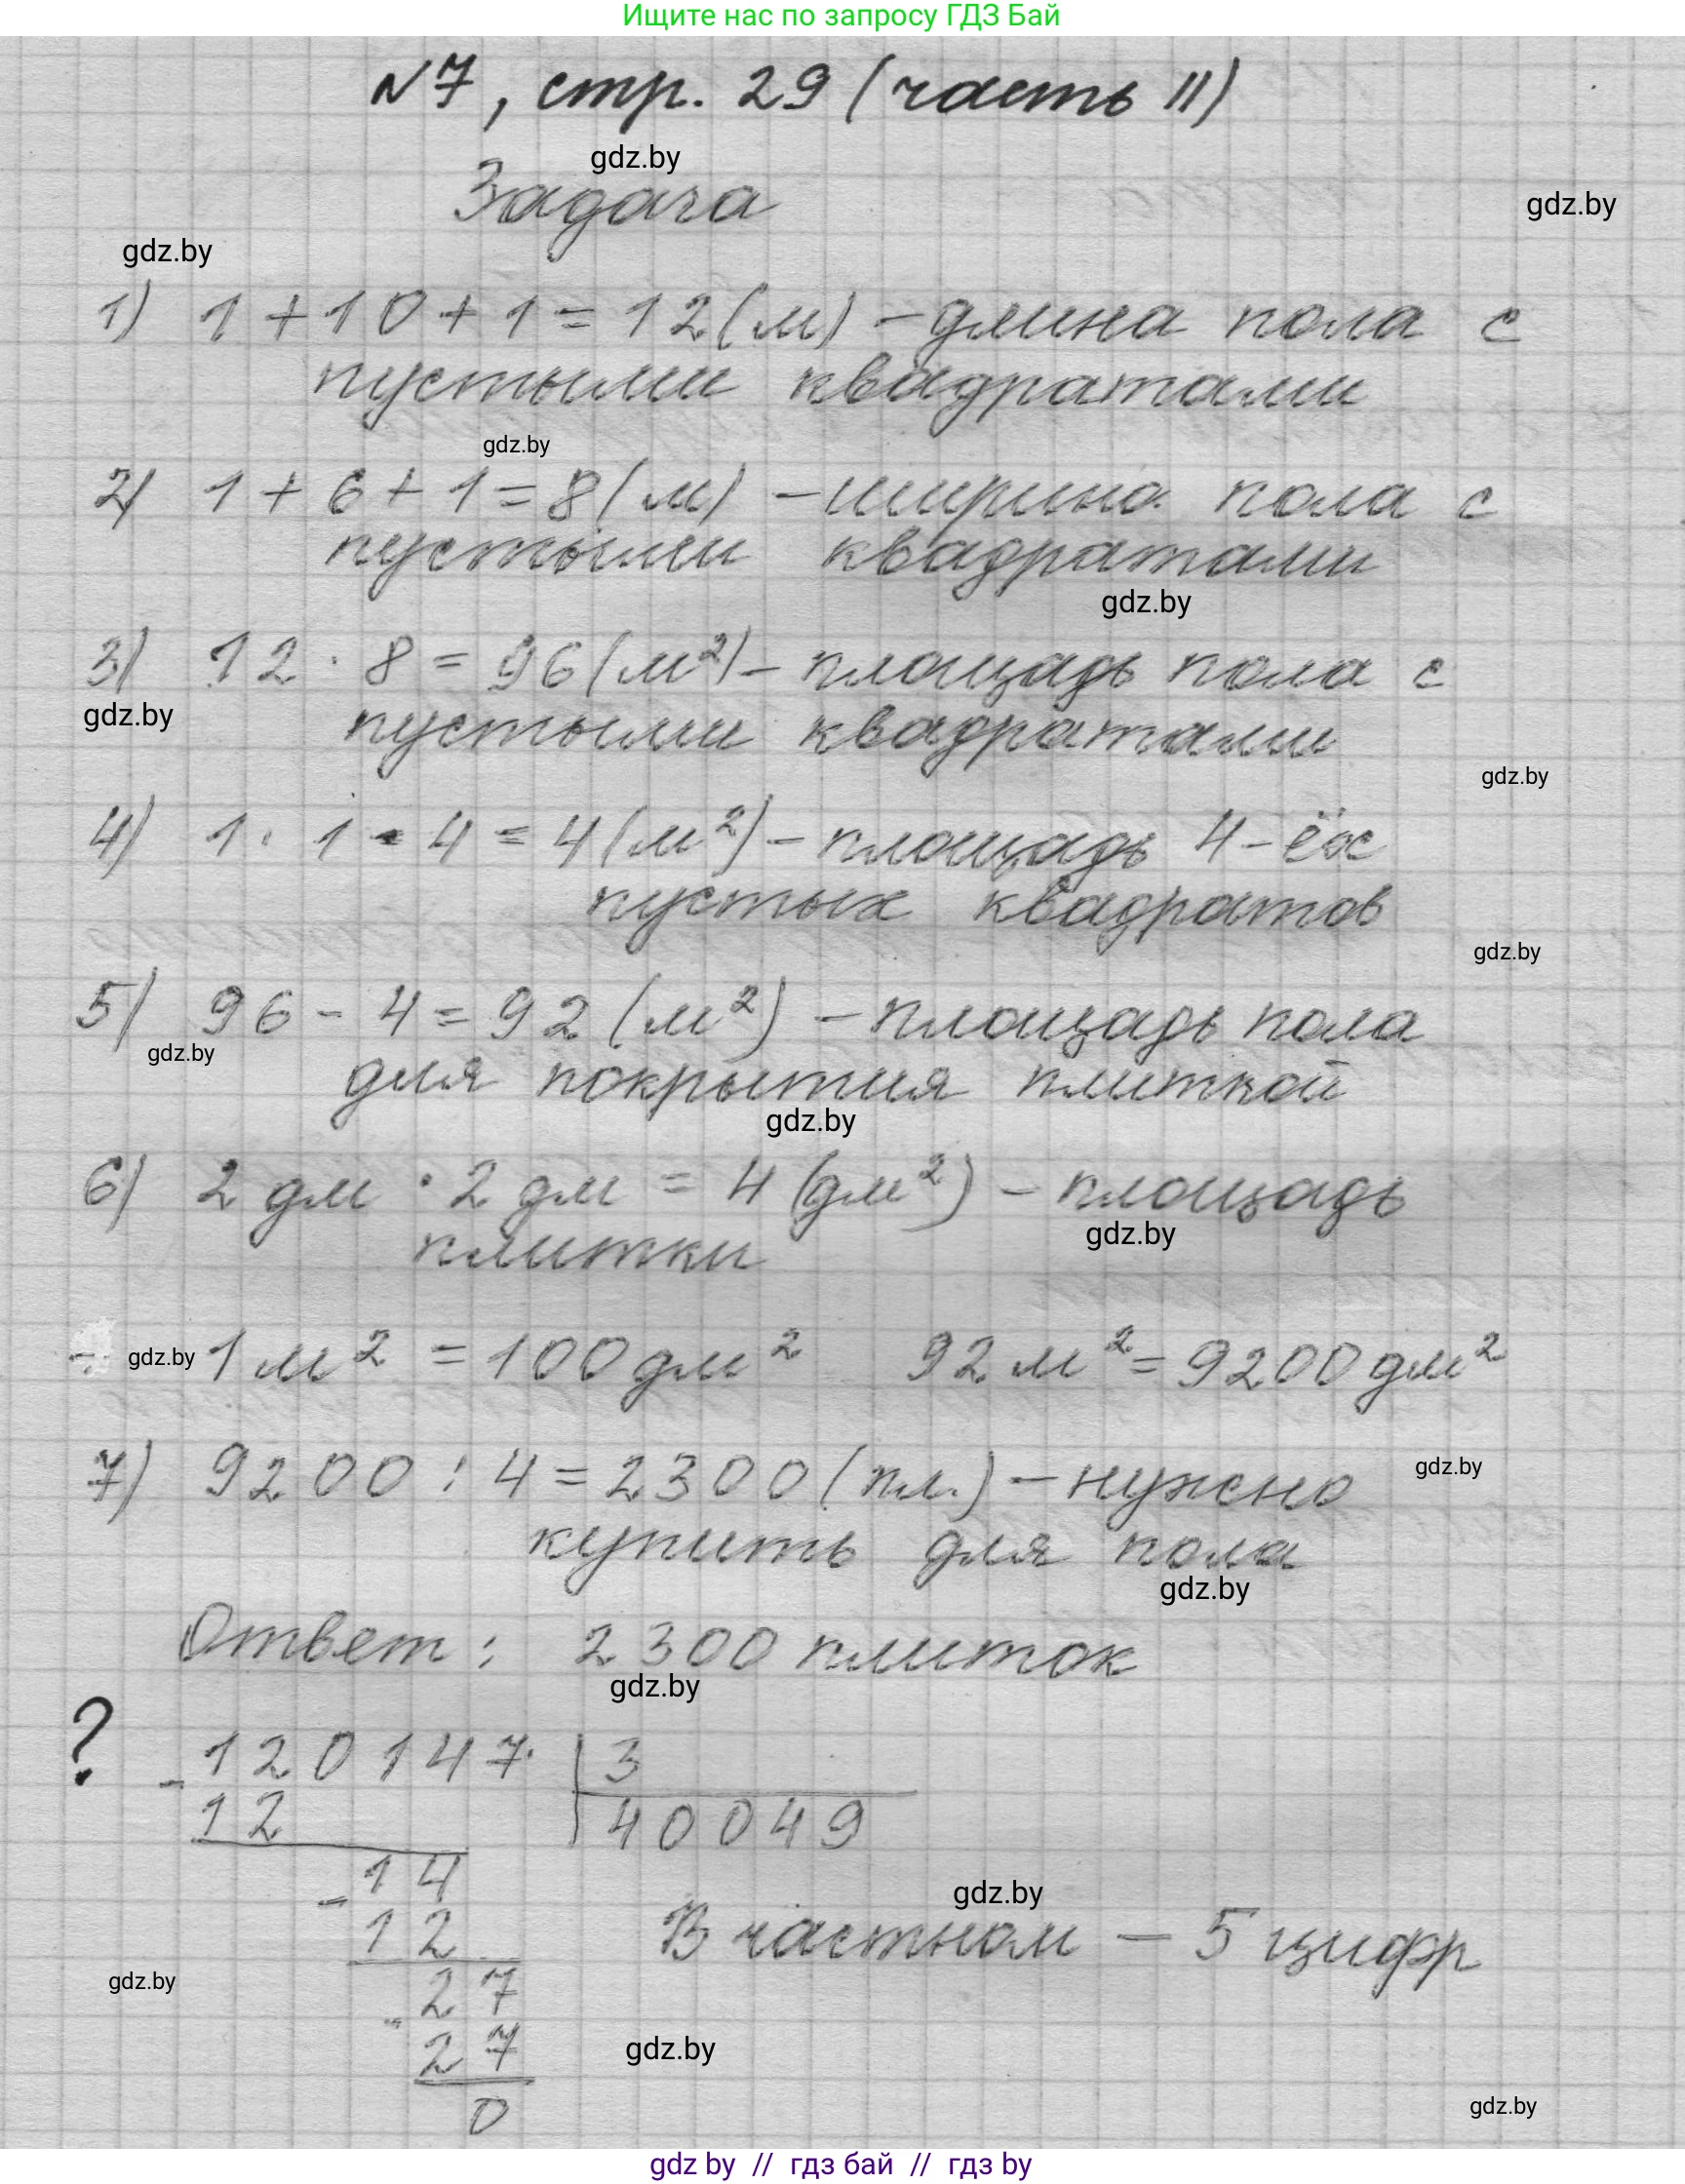 Ищите нас по запросу ГДЗ Бай
№7, стр. 29 (часть II)
gdz.by
Задача
gdz.by
gdz.by
1) 1 + 10 + 1 = 12 (м) – длина пола с
пустыми квадратами
gdz.by
2) 1 + 6 + 1 = 8 (м) – ширина пола с
пустыми квадратами
gdz.by
3) 12 · 8 = 96 (м²) – площадь пола с
gdz.by
пустыми квадратами
gdz.by
4) 1 · 1 · 4 = 4 (м²) – площадь 4-ёх
пустых квадратов
gdz.by
5) 96 - 4 = 92 (м²) – площадь пола
gdz.by
для покрытия плиткой
gdz.by
6) 2 дм · 2 дм = 4 (дм²) – площадь
gdz.by
плитки
gdz.by
1 м² = 100 дм² 92 м² = 9200 дм²
7) 9200 : 4 = 2300 (пл.) – нужно
gdz.by
купить для пола
gdz.by
Ответ: 2300 плиток
gdz.by
? - 120147 | 3
12 | 40049
- 14
gdz.by
12 В частном – 5 цифр
gdz.by
- 27
27
gdz.by
0
gdz.by
gdz by // гдз бай // гдз by